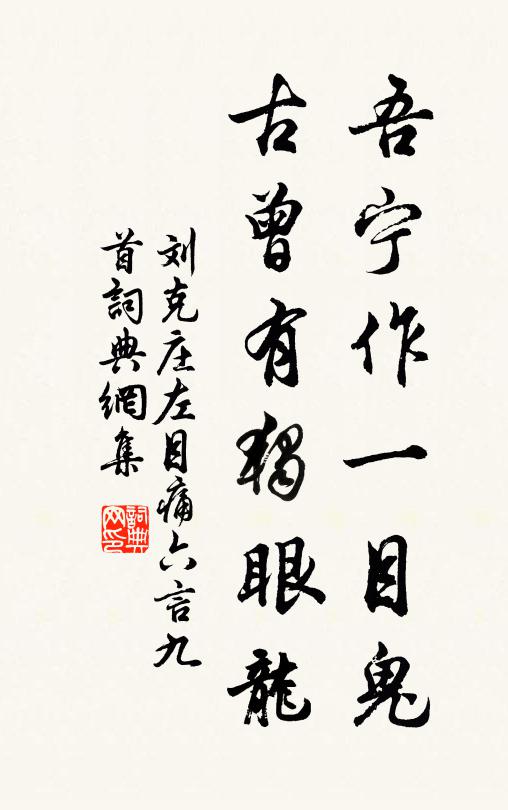 吾宁作一目鬼
古曾有獨眼龍
刘克庄左目痛六言九
首詞典網集
詞典网印